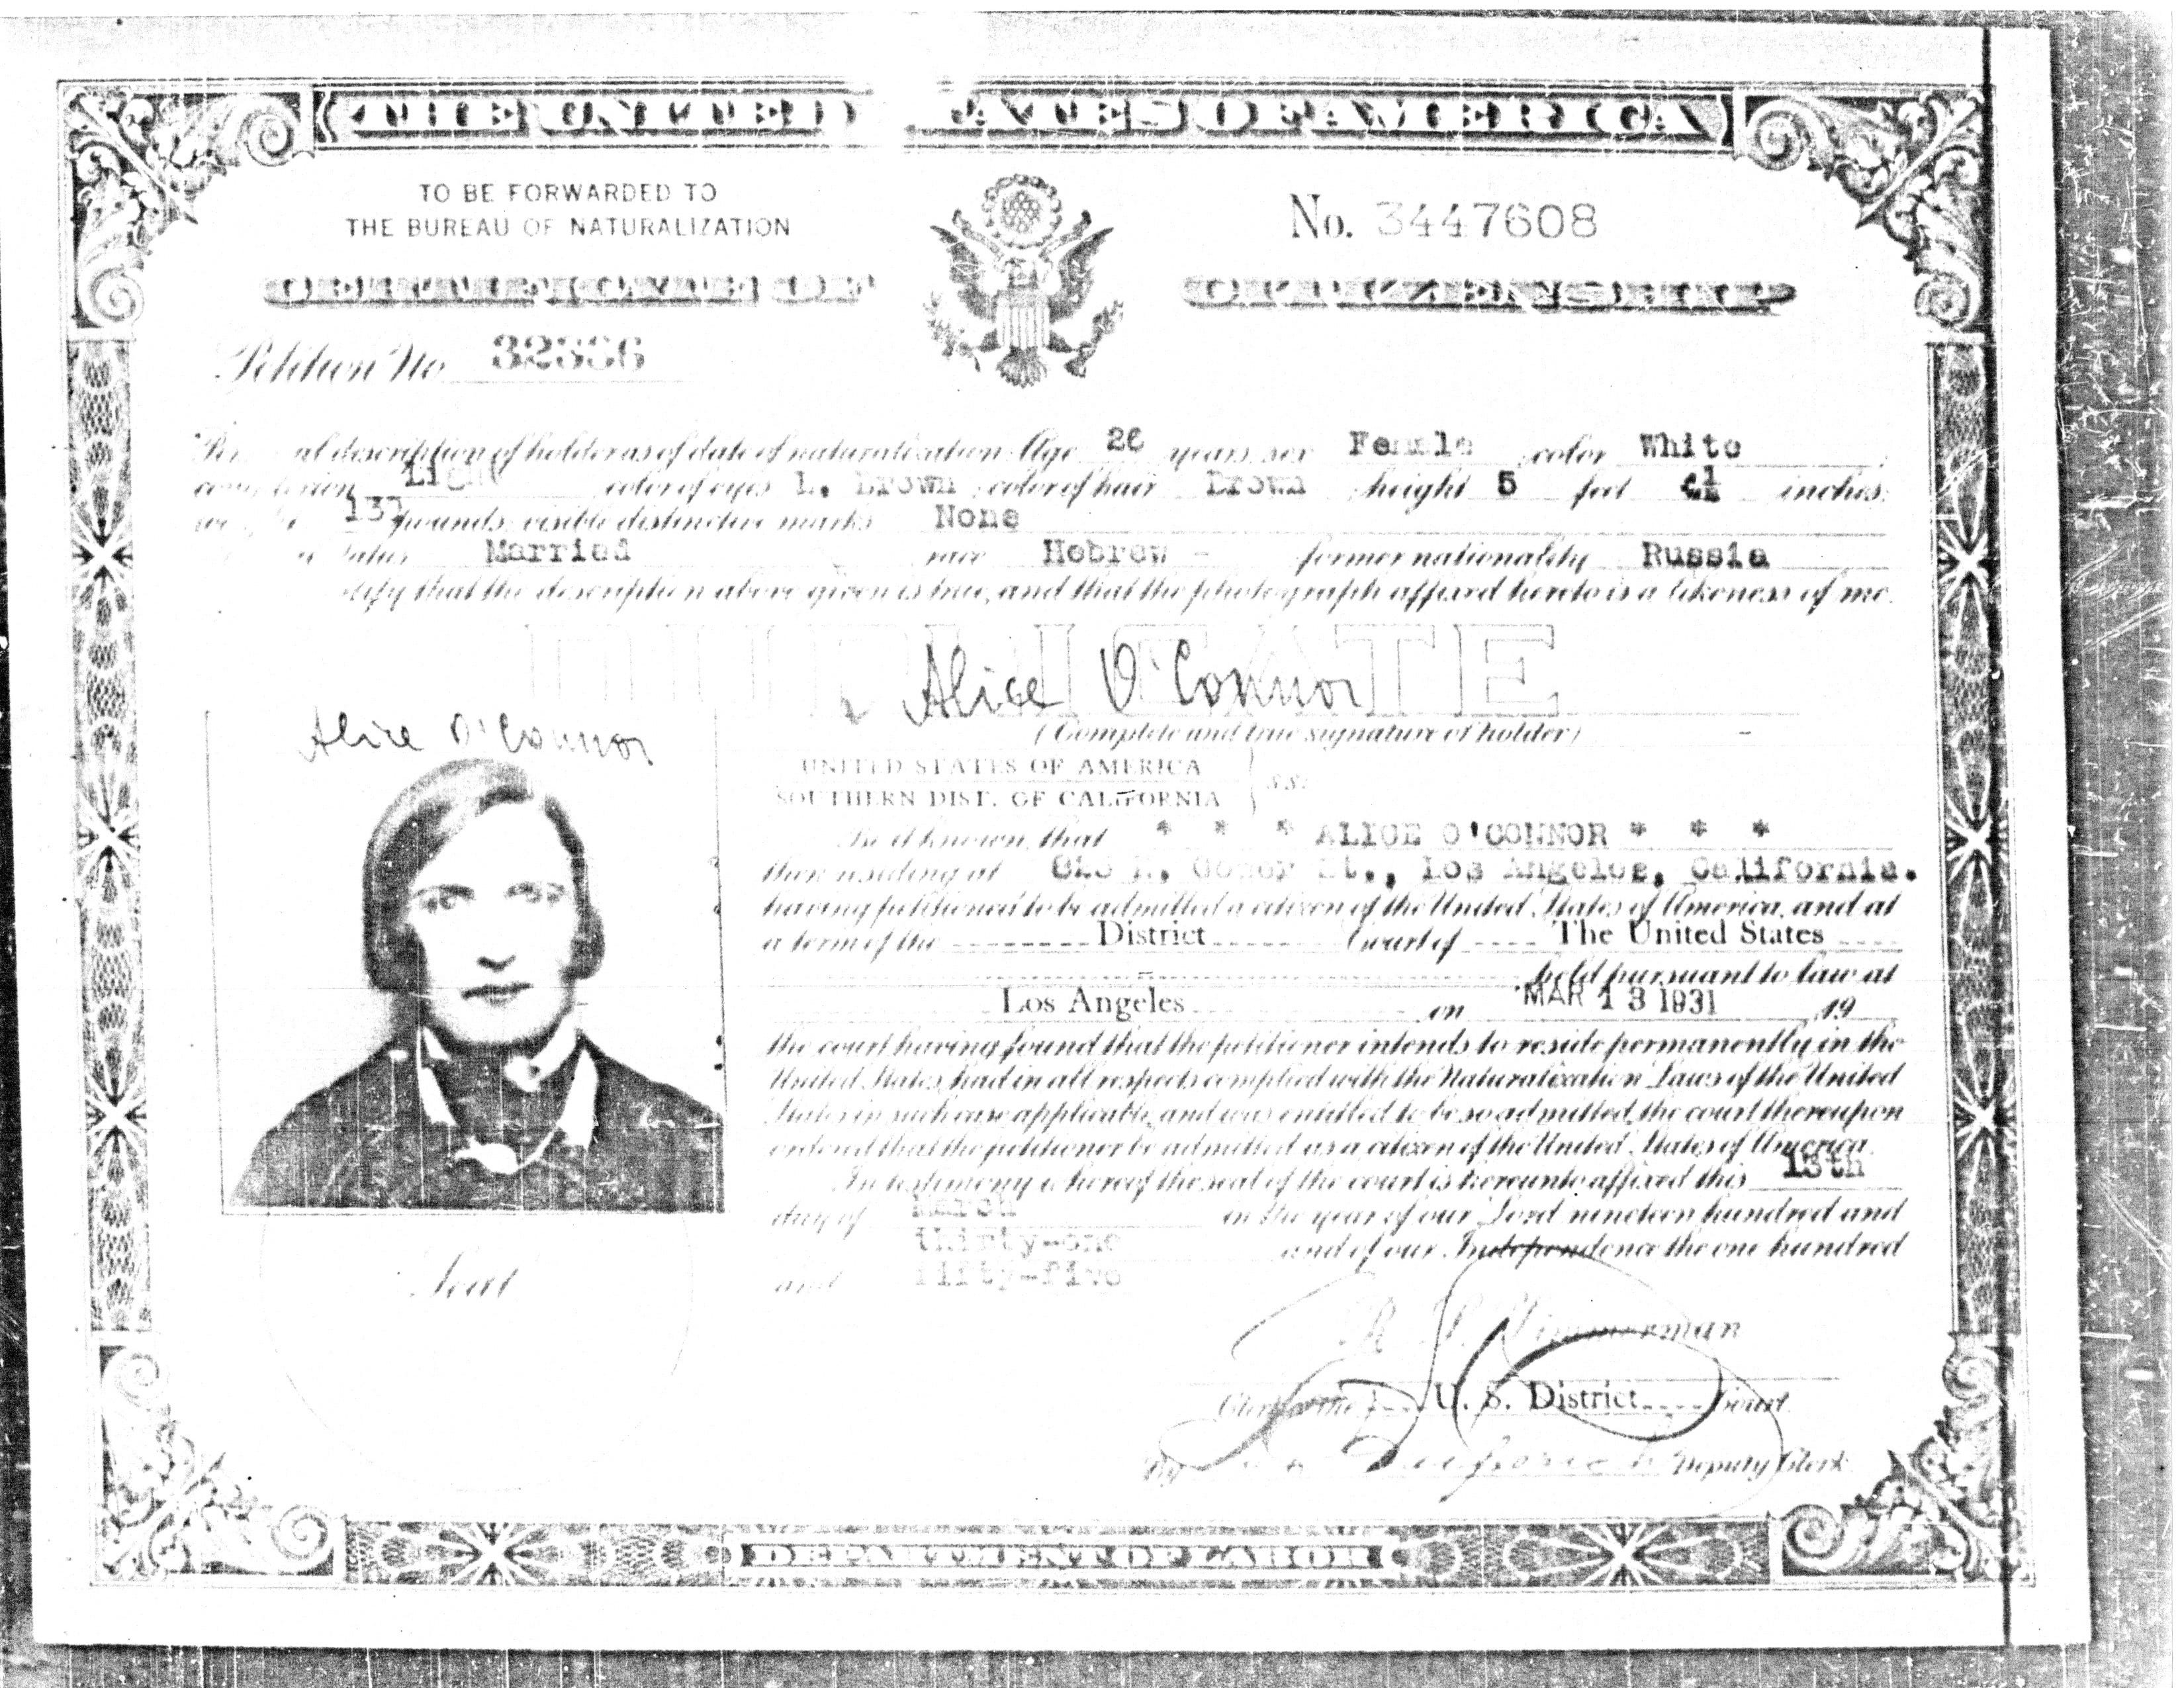 THE UNITED STATES OF AMERICA
TO BE FORWARDED TO
THE BUREAU OF NATURALIZATION
No. 3447608
CERTIFICATE OF CITIZENSHIP
Petition No
al description of holder as of date of naturalization: Age 26 years; sex Female; color White
complexion Light color of eyes L. Brown; color of hair Brown; height 5 feet inches;
pounds; visible distinctive marks None
status Married race Hebrew - former nationality Russia
tify that the description above given is true, and that the photograph affixed hereto is a likeness of me.
DUPLICATE
Alice O'Connor
(Complete and true signature of holder)
Alice O'Connor
UNITED STATES OF AMERICA
SOUTHERN DIST. OF CALIFORNIA
} SS:
Be it known, that * * * ALICE O'CONNOR * * *
then residing at Gower St., Los Angeles, California.
having petitioned to be admitted a citizen of the United States of America, and at
a term of the District Court of The United States
held pursuant to law at
Los Angeles on MAR 13 1931, 19
the court having found that the petitioner intends to reside permanently in the
United States, had in all respects complied with the Naturalization Laws of the United
States in such case applicable, and was entitled to be so admitted, the court thereupon
ordered that the petitioner be admitted as a citizen of the United States of America.
In testimony whereof the seal of the court is hereunto affixed this 13th
day of March in the year of our Lord nineteen hundred and
thirty-one and of our Independence the one hundred
and fifty-five
Seal
Zimmerman
Clerk of the U. S. District Court.
By Deputy Clerk
DEPARTMENT OF LABOR